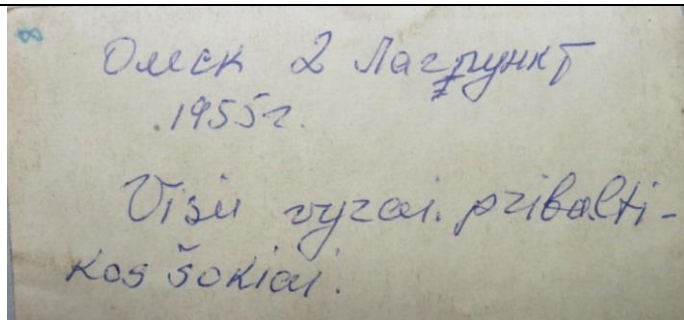 8
Омск 2 Лагпункт
1955г.
Visu vyrai. pribalti-
kos šokiai.